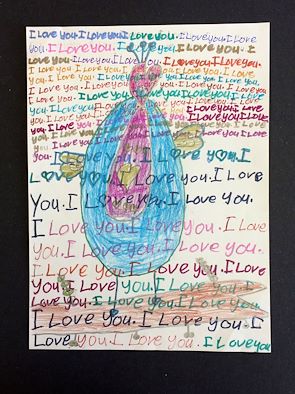 I Love you. I Loveyou. I Loveyou. I Loveyou. I Love
you. I Love you. I Love you. I Loveyou. I
Love you. I Loveyou. I Love you. I Loveyou. I Loveyou.
I Love you. I Love you. I Love you. I Love you. I Love
you. I Love you. I Love you. I Love you. I Love you.
I Love you. I Love you. I Love you. I Love you.
I Love you. I Love you. I Love you. I Love you.
you. I Love you. I Loveyou. I Loveyou. I Love
you. I Love you. I Love you. I Love you. I Love
you. I Love you. I Love you. I Loveyou. I Love
you. I Love you. I Love you. I Love
you. I Love you. I Love you. I
Love you. I Love you. I Love
you. I Love you. I Love you.
I Love you. I Love you. I Love
you. I Love you. I Love you.
I Love you. I Love you. I Love
You. I Love you. I Love you.
Love you. I Love you. I Love you.
I Love you. I Love you. I
Love you. I Love you. I Love you